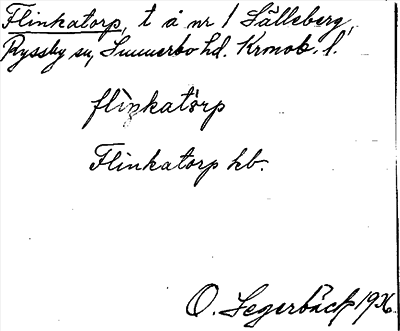 Flinkatorp, t å nr 1 Sälleberg,
Ryssby sn, Sunnerbo hd. Krnob. l.
flinkatòrp
Flinkatorp kb.
O. Segerbäck 1936.